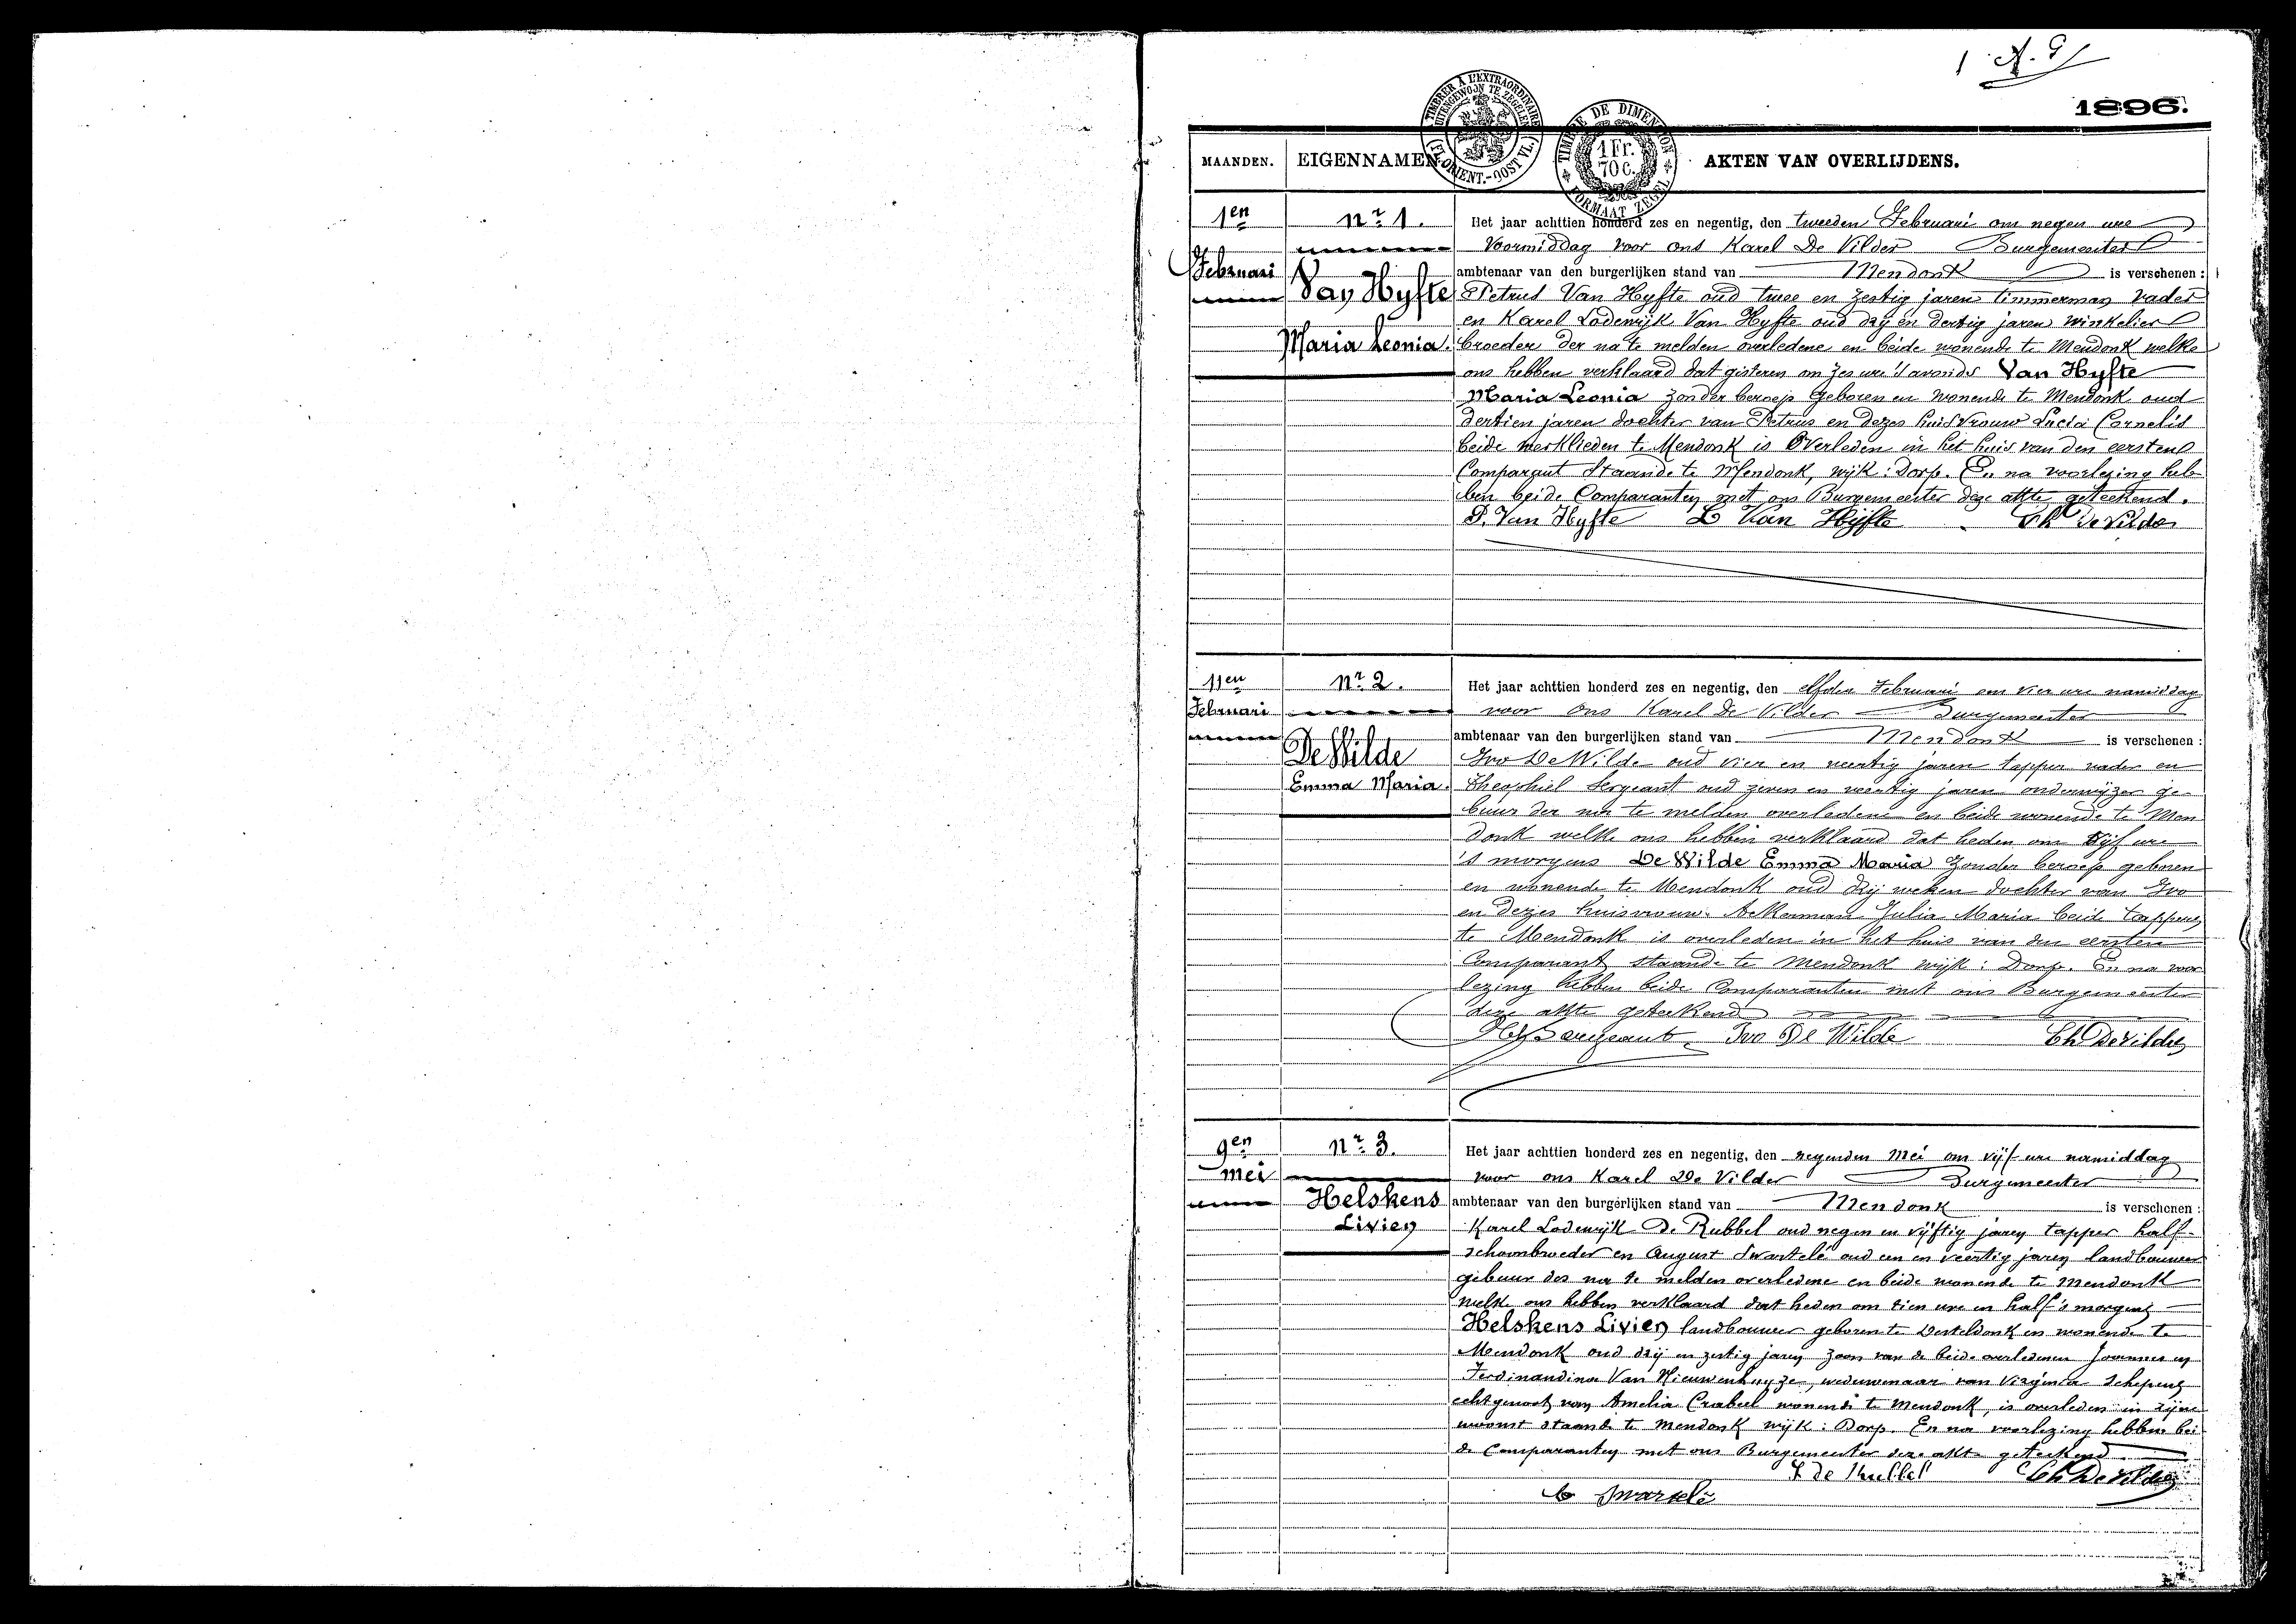 1 A. G
1896.
TIMBRER À L'EXTRAORDINAIRE
UITENGEWOON TE ZEGELEN
(FL. ORIENT.-OOST VL.)
TIMBRE DE DIMENSION
1 Fr.
70 C.
FORMAAT ZEGEL
MAANDEN. EIGENNAMEN AKTEN VAN OVERLIJDENS.
1en
Februari
nr 1.
Van Hyfte
Maria Leonia.
Het jaar achttien honderd zes en negentig, den tweeden Februari om negen ure
voormiddag voor ons Karel De Vilder Burgemeester
ambtenaar van den burgerlijken stand van Mendonk is verschenen :
Petrus Van Hyfte oud twee en zestig jaren timmerman vader
en Karel Lodewijk Van Hyfte oud drij en dertig jaren winkelier
broeder der na te melden overledene en beide wonende te Mendonk welke
ons hebben verklaard dat gisteren om zes ure 's avonds Van Hyfte
Maria Leonia zonder beroep geboren en wonende te Mendonk oud
dertien jaren dochter van Petrus en dezes huisvrouw Lucia Cornelis
beide werklieden te Mendonk is overleden in het huis van den eersten
Comparant staande te Mendonk, wijk : Dorp. En na voorlezing heb-
ben beide Comparanten met ons Burgemeester deze akte geteekend.
P. Van Hyfte L Van Hijfte Ch De Vilder
11en
Februari
nr 2.
De Wilde
Emma Maria.
Het jaar achttien honderd zes en negentig, den elfden Februari om vier ure namiddag
voor ons Karel De Vilder Burgemeester
ambtenaar van den burgerlijken stand van Mendonk is verschenen :
Ivo De Wilde oud vier en veertig jaren tapper vader en
Theophiel Sergeant oud zeven en veertig jaren onderwijzer ge-
buur der na te melden overledene en beide wonende te Men
donk welke ons hebben verklaard dat heden om vijf ure
's morgens De Wilde Emma Maria zonder beroep geboren
en wonende te Mendonk oud drij weken dochter van Ivo
en dezes huisvrouw Ackerman Julia Maria beide tappers
te Mendonk is overleden in het huis van den eersten
Comparant staande te Mendonk wijk : Dorp. En na voor
lezing hebben beide Comparanten met ons Burgemeester
deze akte geteekend
Sergeant Ivo De Wilde Ch De Vilder
9en
mei
nr 3.
Helskens
Livien
Het jaar achttien honderd zes en negentig, den negenden Mei om vijf ure namiddag
voor ons Karel De Vilder Burgemeester
ambtenaar van den burgerlijken stand van Mendonk is verschenen :
Karel Lodewijk De Rubbel oud negen en vijftig jaren tapper half-
schoonbroeder en August Swartelé oud een en veertig jaren landbouwer
gebuur der na te melden overledene en beide wonende te Mendonk
welke ons hebben verklaard dat heden om tien ure en half 's morgens
Helskens Livien landbouwer geboren te Desteldonk en wonende te
Mendonk oud drij en zestig jaren zoon van de beide overledenen Joannes en
Ferdinandina Van Nieuwenhuyze, weduwenaar van Virginia Schepens
echtgenoot van Amelia Crabeel wonende te Mendonk, is overleden in zijne
woonst staande te Mendonk wijk : Dorp. En na voorlezing hebben bei
de Comparanten met ons Burgemeester deze akte geteekend
De Rubbel Ch De Vilder
Swartelé